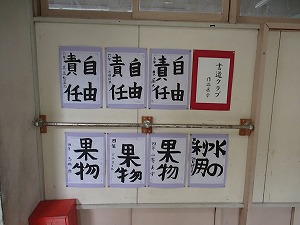 書道クラブ
作品展示
自由
責任
自由
責任
自由
責任
水の
利用
果物
果物
果物